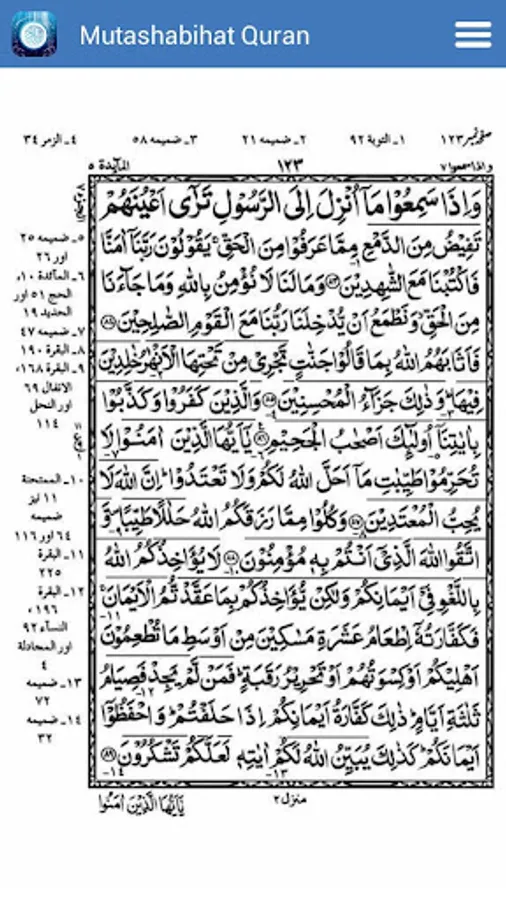 Mutashabihat Quran
صفحہ نمبر ۱۲۳ ۱ـ التوبة ۹۲ ۲ـ ضمیمه ۲۱ ۳ـ ضمیمه ۵۸ ۴ـ الزمر ۳۴
واذاسمعوا ۷ ۱۲۳ المآىِٕدة ۵
وَاِذَا سَمِعُوْا مَاۤ اُنْزِلَ اِلَى الرَّسُوْلِ تَرٰۤى اَعْيُنَهُمْ
تَفِيْضُ مِنَ الدَّمْعِ مِمَّا عَرَفُوْا مِنَ الْحَقِّ ۚ يَقُوْلُوْنَ رَبَّنَاۤ اٰمَنَّا
فَاكْتُبْنَا مَعَ الشّٰهِدِيْنَ ﴿۸۳﴾ وَمَا لَنَا لَا نُؤْمِنُ بِاللّٰهِ وَمَا جَآءَنَا
مِنَ الْحَقِّ ۙ وَنَطْمَعُ اَنْ يُّدْخِلَنَا رَبُّنَا مَعَ الْقَوْمِ الصّٰلِحِيْنَ ﴿۸۴﴾
فَاَثَابَهُمُ اللّٰهُ بِمَا قَالُوْا جَنّٰتٍ تَجْرِيْ مِنْ تَحْتِهَا الْاَنْهٰرُ خٰلِدِيْنَ
فِيْهَا ؕ وَذٰلِكَ جَزَآءُ الْمُحْسِنِيْنَ ﴿۸۵﴾ وَالَّذِيْنَ كَفَرُوْا وَكَذَّبُوْا
بِاٰيٰتِنَاۤ اُولٰٓئِكَ اَصْحٰبُ الْجَحِيْمِ ﴿۸۶﴾ يٰۤاَيُّهَا الَّذِيْنَ اٰمَنُوْا لَا
تُحَرِّمُوْا طَيِّبٰتِ مَاۤ اَحَلَّ اللّٰهُ لَكُمْ وَلَا تَعْتَدُوْا ؕ اِنَّ اللّٰهَ لَا
يُحِبُّ الْمُعْتَدِيْنَ ﴿۸۷﴾ وَكُلُوْا مِمَّا رَزَقَكُمُ اللّٰهُ حَلٰلًا طَيِّبًا ۪ وَّ
اتَّقُوا اللّٰهَ الَّذِيْۤ اَنْتُمْ بِهٖ مُؤْمِنُوْنَ ﴿۸۸﴾ لَا يُؤَاخِذُكُمُ اللّٰهُ
بِاللَّغْوِ فِيْۤ اَيْمَانِكُمْ وَلٰكِنْ يُّؤَاخِذُكُمْ بِمَا عَقَّدْتُّمُ الْاَيْمَانَ ۚ
فَكَفَّارَتُهٗۤ اِطْعَامُ عَشَرَةِ مَسٰكِيْنَ مِنْ اَوْسَطِ مَا تُطْعِمُوْنَ
اَهْلِيْكُمْ اَوْ كِسْوَتُهُمْ اَوْ تَحْرِيْرُ رَقَبَةٍ ؕ فَمَنْ لَّمْ يَجِدْ فَصِيَامُ
ثَلٰثَةِ اَيَّامٍ ؕ ذٰلِكَ كَفَّارَةُ اَيْمَانِكُمْ اِذَا حَلَفْتُمْ ؕ وَاحْفَظُوْۤا
اَيْمَانَكُمْ ؕ كَذٰلِكَ يُبَيِّنُ اللّٰهُ لَكُمْ اٰيٰتِهٖ لَعَلَّكُمْ تَشْكُرُوْنَ ﴿۸۹﴾
۵ـ ضمیمه ۲۵
اور ۲۶
۶ـ المآئدة ۱۰،
الحج ۵۱ اور
الحدید ۱۹
۷ـ ضمیمه ۴۷
۸ـ البقرة ۱۹۰
۹ـ البقرة ۱۶۸،
الانفال ۶۹
اور النحل
۱۱۴
۱۰ـ الممتحنة
۱۱ نیز
ضمیمه
۶۴ اور ۱۱۶
۱۱ـ البقرة
۲۲۵
۱۲ـ البقرة
۱۹۶،
النسآء ۹۲
اور المجادلة
۴
۱۳ـ ضمیمه
۷۲
۱۴ـ ضمیمه
۳۲
منزل ۲
يٰۤاَيُّهَا الَّذِيْنَ اٰمَنُوْۤا